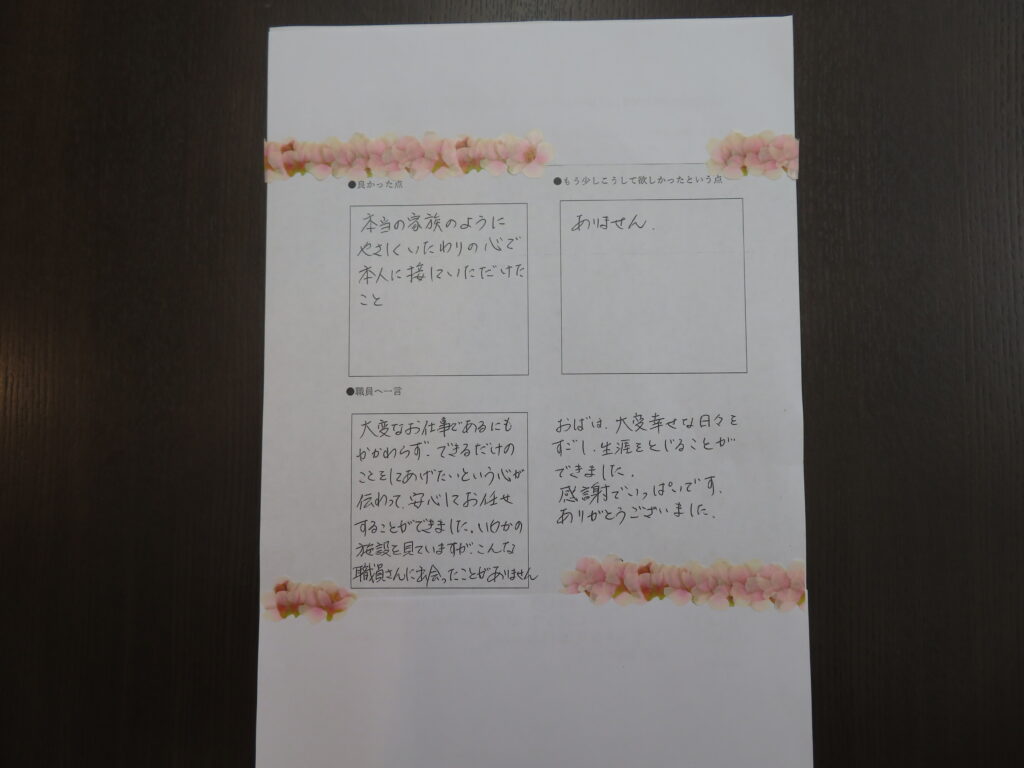 ●良かった点
本当の家族のように
やさしくいたわりの心で
本人に接していただけた
こと
●もう少しこうして欲しかったという点
ありません.
●職員へ一言
大変なお仕事であるにも
かかわらず、できるだけの
ことをしてあげたいという心が
伝わって、安心してお任せ
することができました。いくつかの
施設を見ていますが、こんな
職員さんに出会ったことがありません
おばは、大変幸せな日々を
すごし、生涯をとじることが
できました。
感謝でいっぱいです。
ありがとうございました。